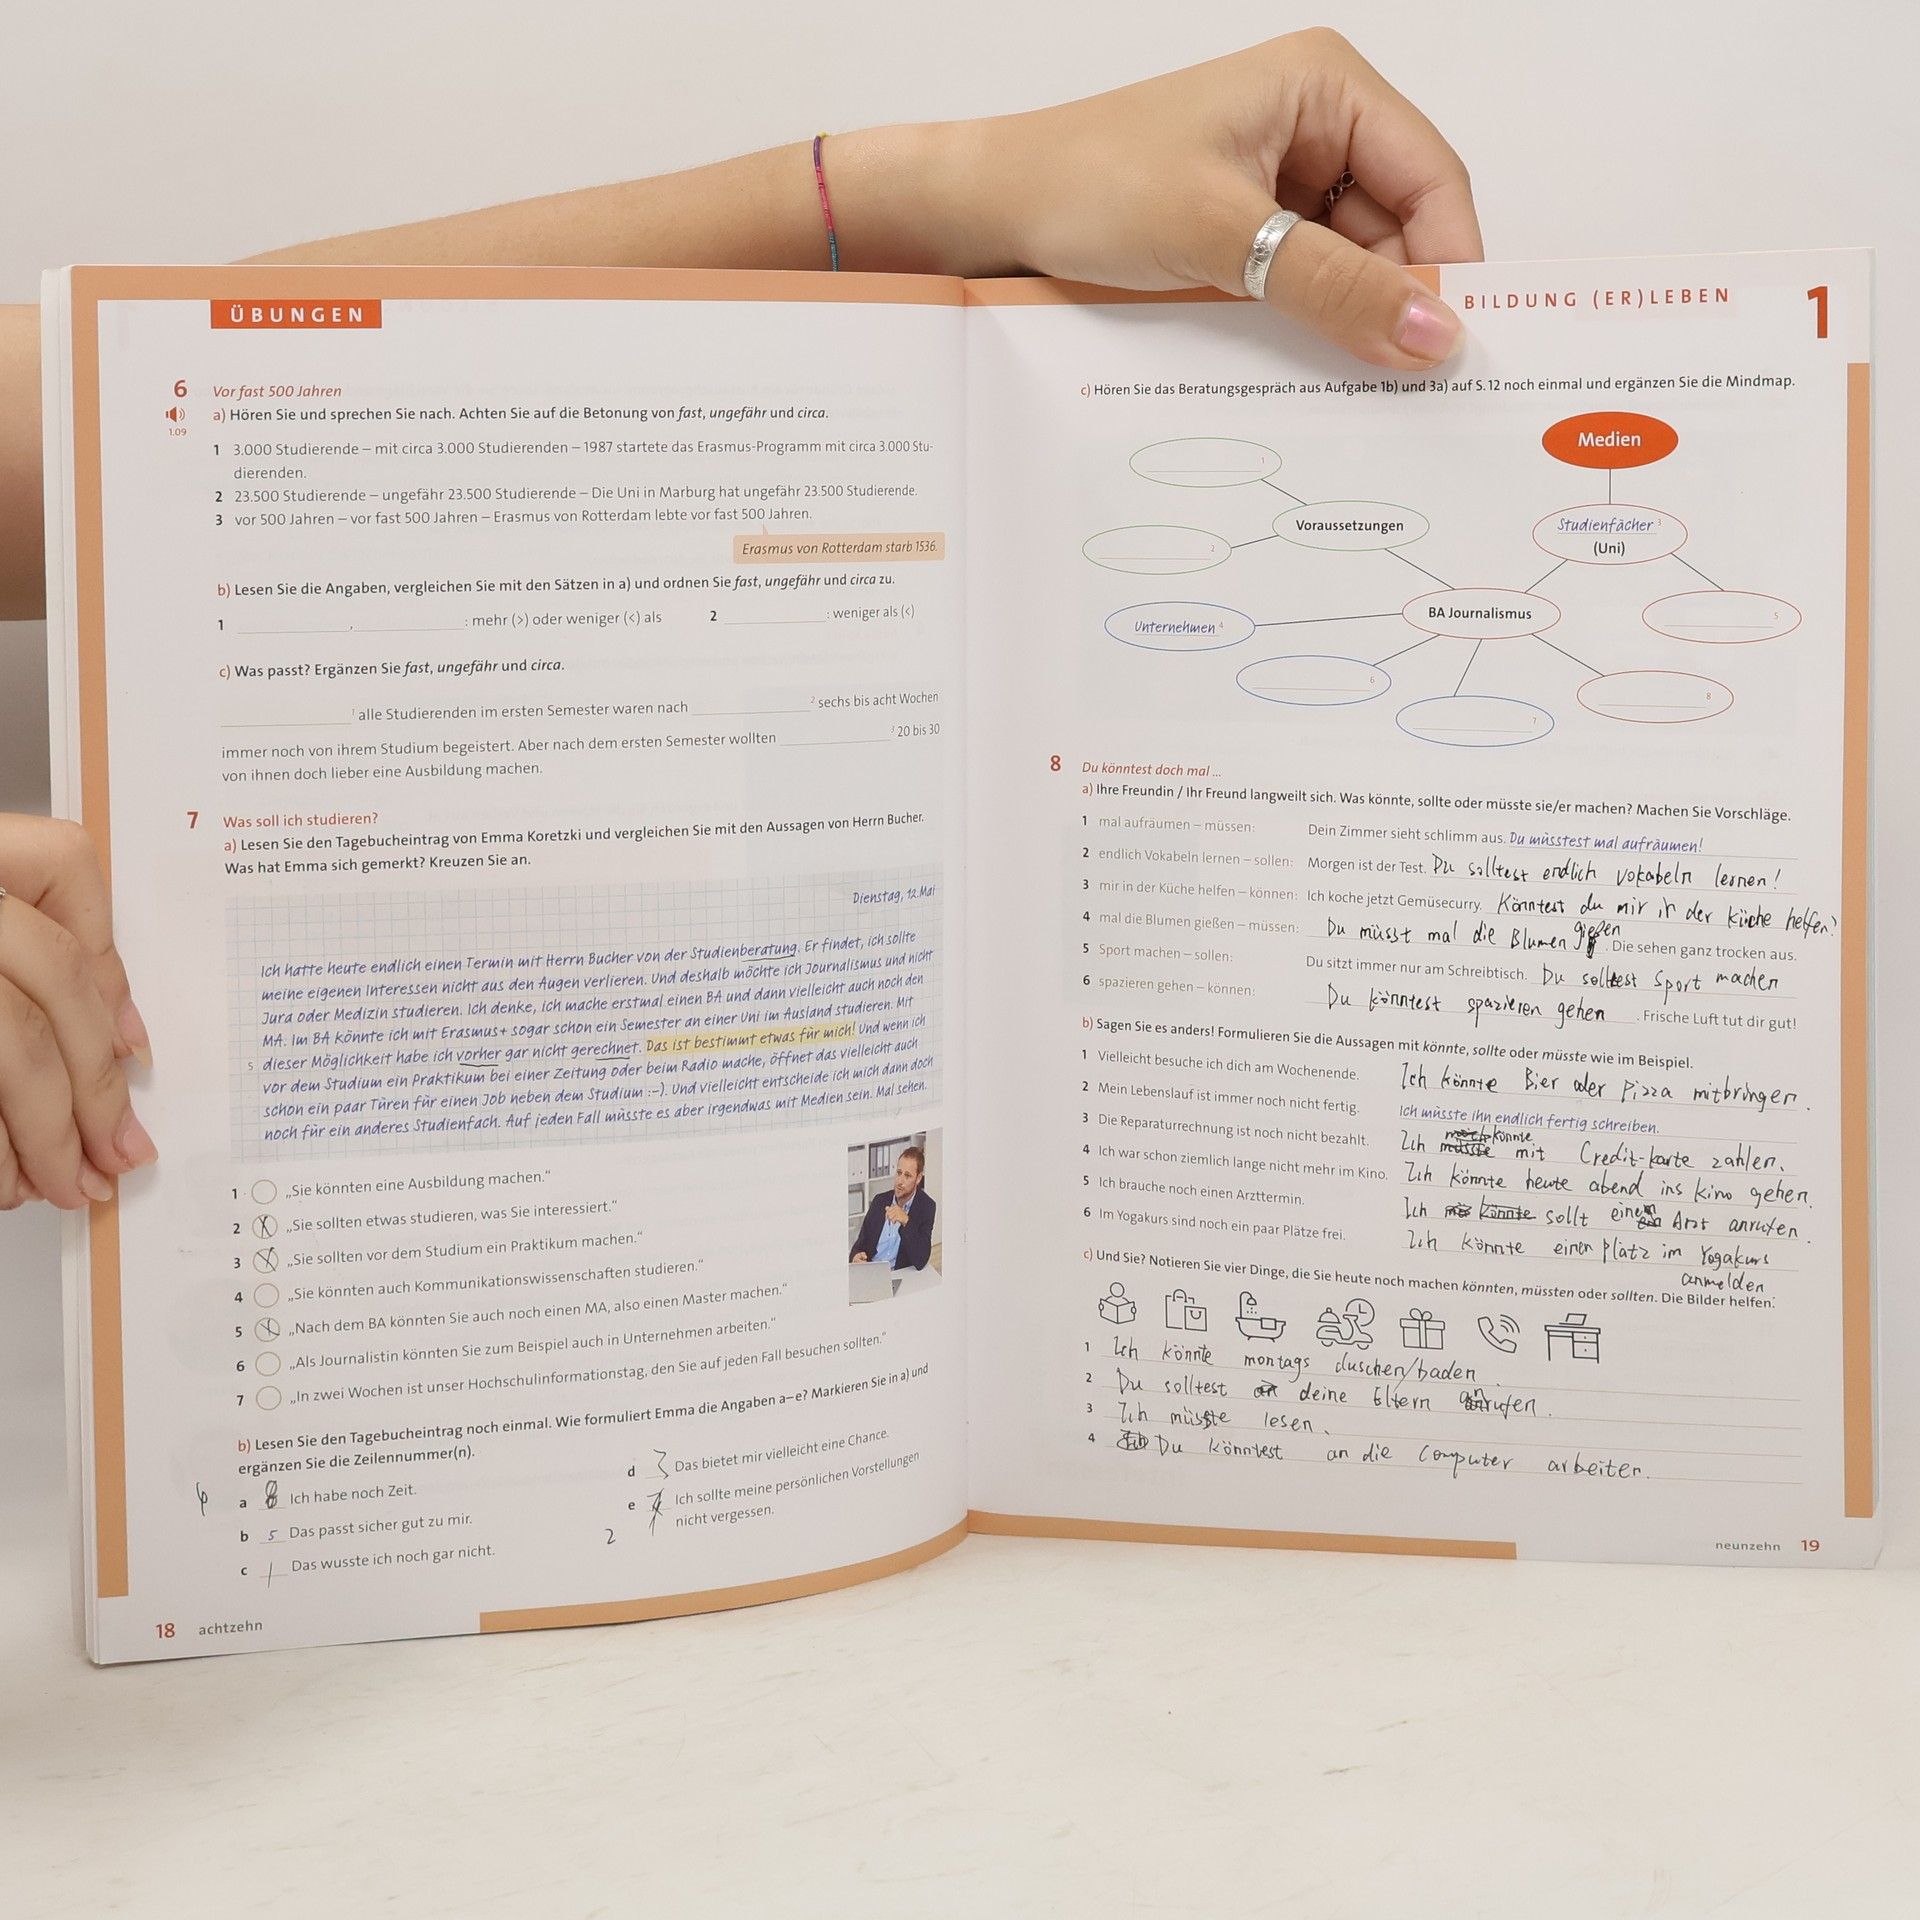 ÜBUNGEN
6 Vor fast 500 Jahren
1.09
a) Hören Sie und sprechen Sie nach. Achten Sie auf die Betonung von fast, ungefähr und circa.
1 3.000 Studierende – mit circa 3.000 Studierenden – 1987 startete das Erasmus-Programm mit circa 3.000 Stu-
dierenden.
2 23.500 Studierende – ungefähr 23.500 Studierende – Die Uni in Marburg hat ungefähr 23.500 Studierende.
3 vor 500 Jahren – vor fast 500 Jahren – Erasmus von Rotterdam lebte vor fast 500 Jahren.
Erasmus von Rotterdam starb 1536.
b) Lesen Sie die Angaben, vergleichen Sie mit den Sätzen in a) und ordnen Sie fast, ungefähr und circa zu.
1 ________, ________: mehr (>) oder weniger (<) als 2 ________: weniger als (<)
c) Was passt? Ergänzen Sie fast, ungefähr und circa.
________ 1 alle Studierenden im ersten Semester waren nach ________ 2 sechs bis acht Wochen
immer noch von ihrem Studium begeistert. Aber nach dem ersten Semester wollten ________ 3 20 bis 30
von ihnen doch lieber eine Ausbildung machen.
7 Was soll ich studieren?
a) Lesen Sie den Tagebucheintrag von Emma Koretzki und vergleichen Sie mit den Aussagen von Herrn Bucher.
Was hat Emma sich gemerkt? Kreuzen Sie an.
Dienstag, 12. Mai
Ich hatte heute endlich einen Termin mit Herrn Bucher von der Studienberatung. Er findet, ich sollte
meine eigenen Interessen nicht aus den Augen verlieren. Und deshalb möchte ich Journalismus und nicht
Jura oder Medizin studieren. Ich denke, ich mache erstmal einen BA und dann vielleicht auch noch den
MA. Im BA könnte ich mit Erasmus+ sogar schon ein Semester an einer Uni im Ausland studieren. Mit
5 dieser Möglichkeit habe ich vorher gar nicht gerechnet. Das ist bestimmt etwas für mich! Und wenn ich
vor dem Studium ein Praktikum bei einer Zeitung oder beim Radio mache, öffnet das vielleicht auch
schon ein paar Türen für einen Job neben dem Studium :-). Und vielleicht entscheide ich mich dann doch
noch für ein anderes Studienfach. Auf jeden Fall müsste es aber irgendwas mit Medien sein. Mal sehen.
1 „Sie könnten eine Ausbildung machen.“
2 X „Sie sollten etwas studieren, was Sie interessiert.“
3 X „Sie sollten vor dem Studium ein Praktikum machen.“
4 „Sie könnten auch Kommunikationswissenschaften studieren.“
5 X „Nach dem BA könnten Sie auch noch einen MA, also einen Master machen.“
6 „Als Journalistin könnten Sie zum Beispiel auch in Unternehmen arbeiten.“
7 „In zwei Wochen ist unser Hochschulinformationstag, den Sie auf jeden Fall besuchen sollten.“
b) Lesen Sie den Tagebucheintrag noch einmal. Wie formuliert Emma die Angaben a–e? Markieren Sie in a) und
ergänzen Sie die Zeilennummer(n).
a 8 Ich habe noch Zeit.
b 5 Das passt sicher gut zu mir.
c 1 Das wusste ich noch gar nicht.
d 3 Das bietet mir vielleicht eine Chance.
e Ich sollte meine persönlichen Vorstellungen
2 nicht vergessen.
18 achtzehn
BILDUNG (ER)LEBEN 1
c) Hören Sie das Beratungsgespräch aus Aufgabe 1b) und 3a) auf S. 12 noch einmal und ergänzen Sie die Mindmap.
Medien
1
Voraussetzungen
Studienfächer 3
(Uni)
2
BA Journalismus
5
Unternehmen 4
6
8
7
8 Du könntest doch mal ...
a) Ihre Freundin / Ihr Freund langweilt sich. Was könnte, sollte oder müsste sie/er machen? Machen Sie Vorschläge.
1 mal aufräumen – müssen: Dein Zimmer sieht schlimm aus. Du müsstest mal aufräumen!
2 endlich Vokabeln lernen – sollen: Morgen ist der Test. Du solltest endlich vokabeln lernen!
3 mir in der Küche helfen – können: Ich koche jetzt Gemüsecurry. Könntest du mir in der Küche helfen?
4 mal die Blumen gießen – müssen: Du müsst mal die Blumen gießen. Die sehen ganz trocken aus.
5 Sport machen – sollen: Du sitzt immer nur am Schreibtisch. Du solltest Sport machen
6 spazieren gehen – können: Du könntest spazieren gehen. Frische Luft tut dir gut!
b) Sagen Sie es anders! Formulieren Sie die Aussagen mit könnte, sollte oder müsste wie im Beispiel.
1 Vielleicht besuche ich dich am Wochenende. Ich könnte Bier oder Pizza mitbringen.
2 Mein Lebenslauf ist immer noch nicht fertig. Ich müsste ihn endlich fertig schreiben.
3 Die Reparaturrechnung ist noch nicht bezahlt. Ich könnte mit Credit-karte zahlen.
4 Ich war schon ziemlich lange nicht mehr im Kino. Ich könnte heute abend ins kino gehen.
5 Ich brauche noch einen Arzttermin. Ich könnte sollt einen Arzt anrufen.
6 Im Yogakurs sind noch ein paar Plätze frei. Ich könnte einen platz im Yogakurs
anmelden
c) Und Sie? Notieren Sie vier Dinge, die Sie heute noch machen könnten, müssten oder sollten. Die Bilder helfen.
1 Ich könnte montags duschen/baden
2 Du solltest deine Eltern anrufen.
3 Ich müsste lesen.
4 Du könntest an die computer arbeiten.
neunzehn 19